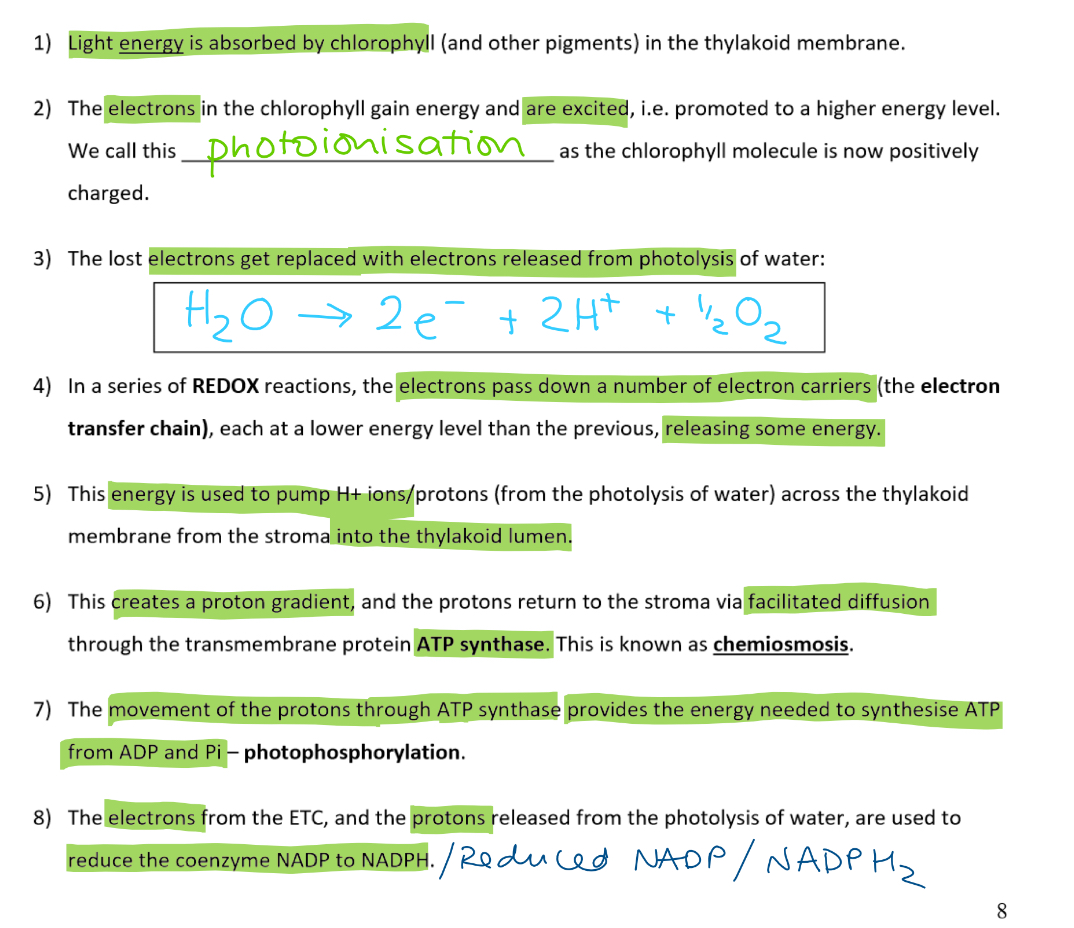 1) Light energy is absorbed by chlorophyll (and other pigments) in the thylakoid membrane.
2) The electrons in the chlorophyll gain energy and are excited, i.e. promoted to a higher energy level.
We call this photoionisation as the chlorophyll molecule is now positively
charged.
3) The lost electrons get replaced with electrons released from photolysis of water:
H₂O → 2e⁻ + 2H⁺ + ½O₂
4) In a series of REDOX reactions, the electrons pass down a number of electron carriers (the electron
transfer chain), each at a lower energy level than the previous, releasing some energy.
5) This energy is used to pump H+ ions/protons (from the photolysis of water) across the thylakoid
membrane from the stroma into the thylakoid lumen.
6) This creates a proton gradient, and the protons return to the stroma via facilitated diffusion
through the transmembrane protein ATP synthase. This is known as chemiosmosis.
7) The movement of the protons through ATP synthase provides the energy needed to synthesise ATP
from ADP and Pi – photophosphorylation.
8) The electrons from the ETC, and the protons released from the photolysis of water, are used to
reduce the coenzyme NADP to NADPH. /Reduced NADP/NADPH₂
8